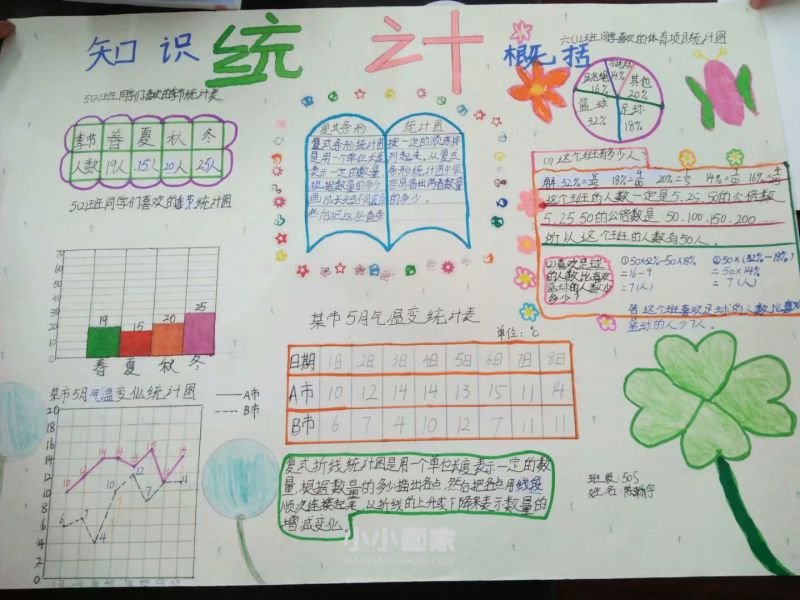 知识 统计 概括
5(2)班同学们喜欢的季节统计表
季节 春 夏 秋 冬
人数 19人 15人 20人 25人
5(2)班同学们喜欢的季节统计图
70
60
50
40
30
20
10
0
19 15 20 25
春 夏 秋 冬
某市5月气温变化统计图
A市
B市
20
18
16
14
12
10
8
6
4
2
0
复式条形
复式条形统计图
是用一个单位长度
表示一定的数量
根据数量的多少
统计图
按一定的顺序排
列起来,从复式
条形统计图中很
容易看出两者数量
的多少。
某市5月气温变统计表
单位:℃
日期 1日 2日 3日 4日 5日 6日 7日 8日
A市 10 12 14 14 13 15 11 14
B市 6 7 4 10 12 7 11 11
复式折线统计图是用一个单位长度表示一定的数
量,根据数量的多少描出各点,然后把各点用线段
顺次连接起来,以折线的上升或下降来表示数量的
增减变化。
六(1)班同学喜欢的体育项目统计图
14%
16%
其他
20%
篮球
32%
足球
18%
(1)这个班有多少人
这个班的人数一定是5.25.50的公倍数
5,25,50的公倍数是:50,100,150,200......
所以这个班的人数有50人。
(2)喜欢足球
的人数比喜欢
篮球的人数少
多少?
①50×32%-50×18%
=16-9
=7(人)
②50×(32%-18%)
=50×14%
=7(人)
答:这个班喜欢足球的人数比喜欢
篮球的人少7人。
班级:505
姓名:
小小画家
XIAOXIAOHUAJIA.COM